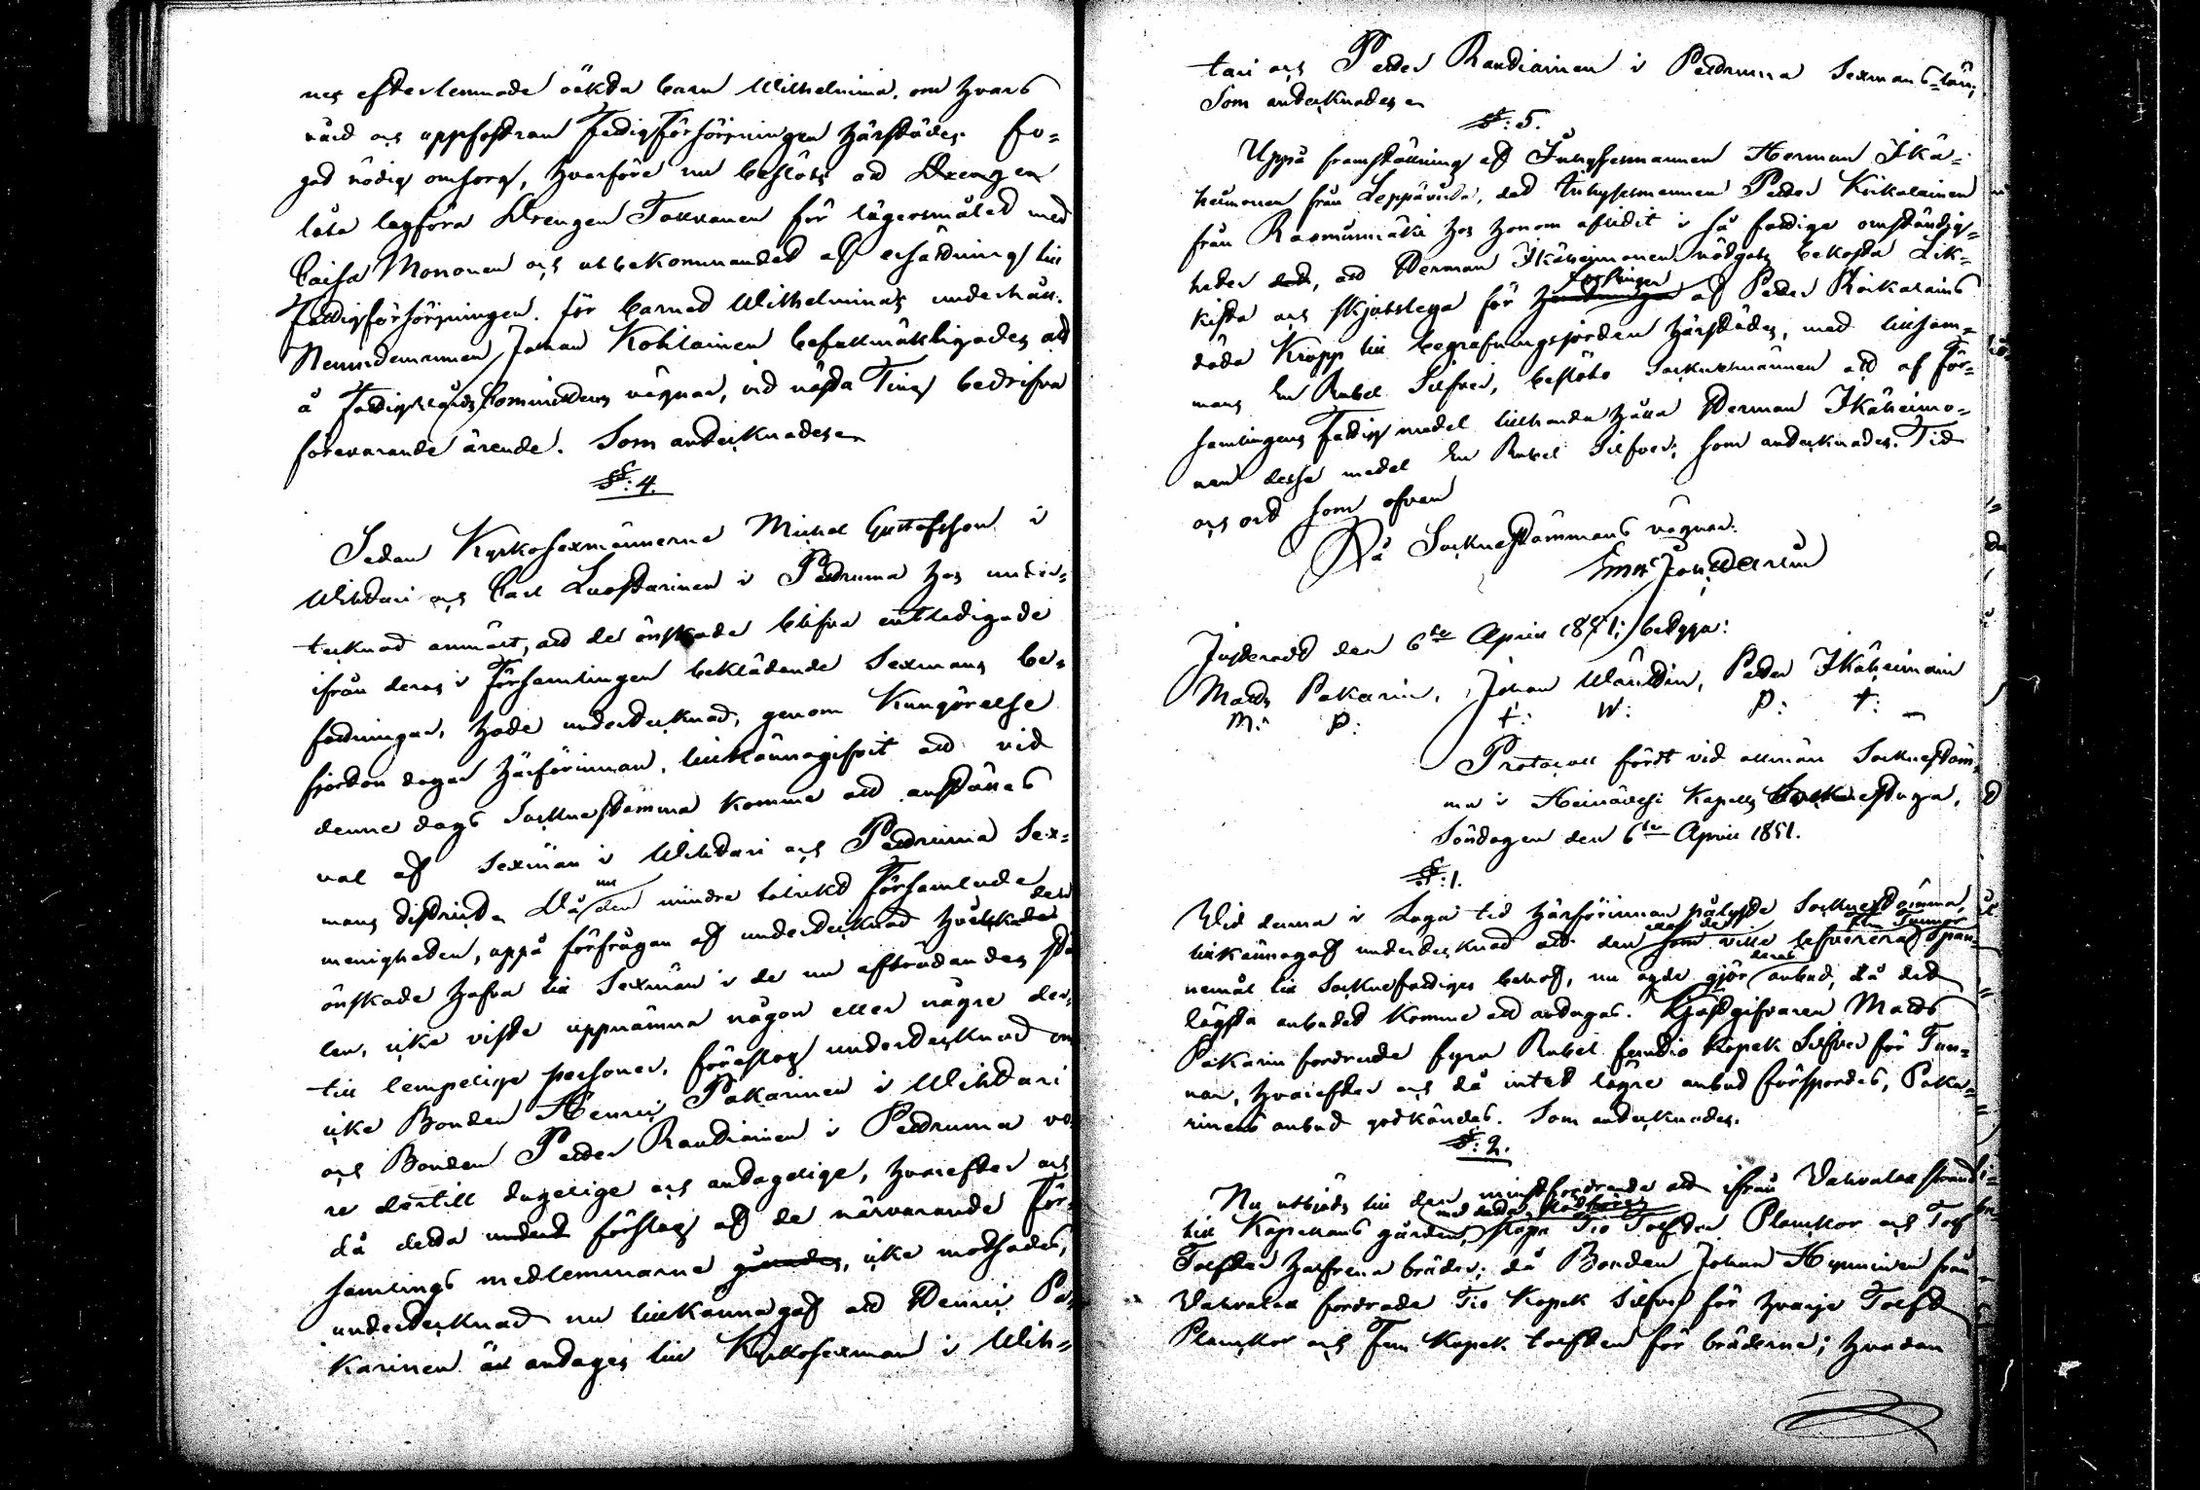 nes efterlemnade oäkta barn Wilhelmina, om hvars
vård och uppfostran Fattigförsörjningen härstädes fo-
gad nödig omsorg, hvarföre nu beslöts att
låta lagföra Drengen Tavvanen för lägersmålet med
Caisa Mononen och utbekommandet af ersättning till
Fattigförsörjningen för barnet Wilhelminas underhåll.
Nemndemannen Johan Kohlainen befullmäktigades att
å Fattigvårds Committéns vägnar, vid nästa Ting bedrifva
förevarande ärende. Som antecknades.
§: 4.
Sedan Kyrkosexmännerne Michel Gustafsson i
Wihtari och Carl Luostarinen i Petruma hos underteck-
tecknad anmält, att de önskade blifva entledigade
ifrån deras i Församlingen beklädande Sexmans be-
fattningar, hade undertecknad, genom Kungörelse
fjorton dagar härförinnan, tillkännagifvit att vid
denne dags Socknestämma komme att anställas
val af Sexmän i Wihtari och Petruma Sex-
mans distrikt. Då nu den mindre talrikt Församlade
menigheten, uppå förfrågan af undertecknad hvilka den
önskade hafva till Sexmän i de nu afträdandes stäl-
len, icke visste uppnämna någon eller någre der-
till lempelige personer, föreslog undertecknad om
icke Bonden Henric Pakarinen i Wihtari
och Bonden Petter Rautiainen i Petruma vo-
re dertill dugelige och antagelige, hvarefter och
då detta förslag af de närvarande För-
samlings medlemmarne, icke motsades,
undertecknad nu tillkännagaf att Henric Pa-
karinen är antages till Kyrkosexman i Wih-
tari och Petter Rautiainen i Petruma Sexmans-län;
Som antecknades.
§: 5.
Uppå framställning af Inhysesmannen Herman Ikä-
heimonen från Leppävirta, att Inhysesmannen Petter Koikalainen
från Rasinmäki hos honom aflidit i så fattige omständig-
heter, att Herman Ikäheimonen nödgats bekosta Lik-
kista och skjutslega för forslingen af Petter Koikalains
döda Kropp till begrafningsjorden härstädes, med tillsam-
mans En Rubel Silfver, beslöto Socknemännen att af För-
samlingens Fattig medel tillhandahålla Herman Ikäheimo-
nen desse medel En Rubel Silfver; som antecknades. Tid
och ort som ofvan
På Socknestämmans vägnar.
Justeradt den 6te April 1851; betyga:
Matts Pakarin, Johan Wänttin, Petter Ikäheimoin
M: P: I: W: P: I:
Protocoll fördt vid allmän Socknestäm-
ma i Heinävesi Kapells Socknestuga,
Söndagen den 6te April 1851.
§: 1.
Vid denna i Laga tid härförinnan pålyste Sockenstämma,
tillkännagaf undertecknad att den som ville Span-
nemål till Socknefattiges behof, nu ägde göra deras anbud, då det
lägsta anbudet komme att antagas. Gästgifvaren Matts
Pakarin fordrade fyra Rubel femtio Kopek Silfver för Tun-
nan, hvarefter och då intet lägre anbud försportes, Paka-
rinens anbud godkändes. Som antecknades.
§: 2.
Nu utbjöds till den minstfordrande att ifrån Vahvalax strand
till Kapellans gården, köra Tio Tolfter Plankor och Tolf
Tolfter bräder; då Bonden Johan Hynninen från
Vahvalax fordrade Tio Kopek Silfver för hvarje Tolft
Plankor och Fem Kopek tolften för bräderne; hvadan